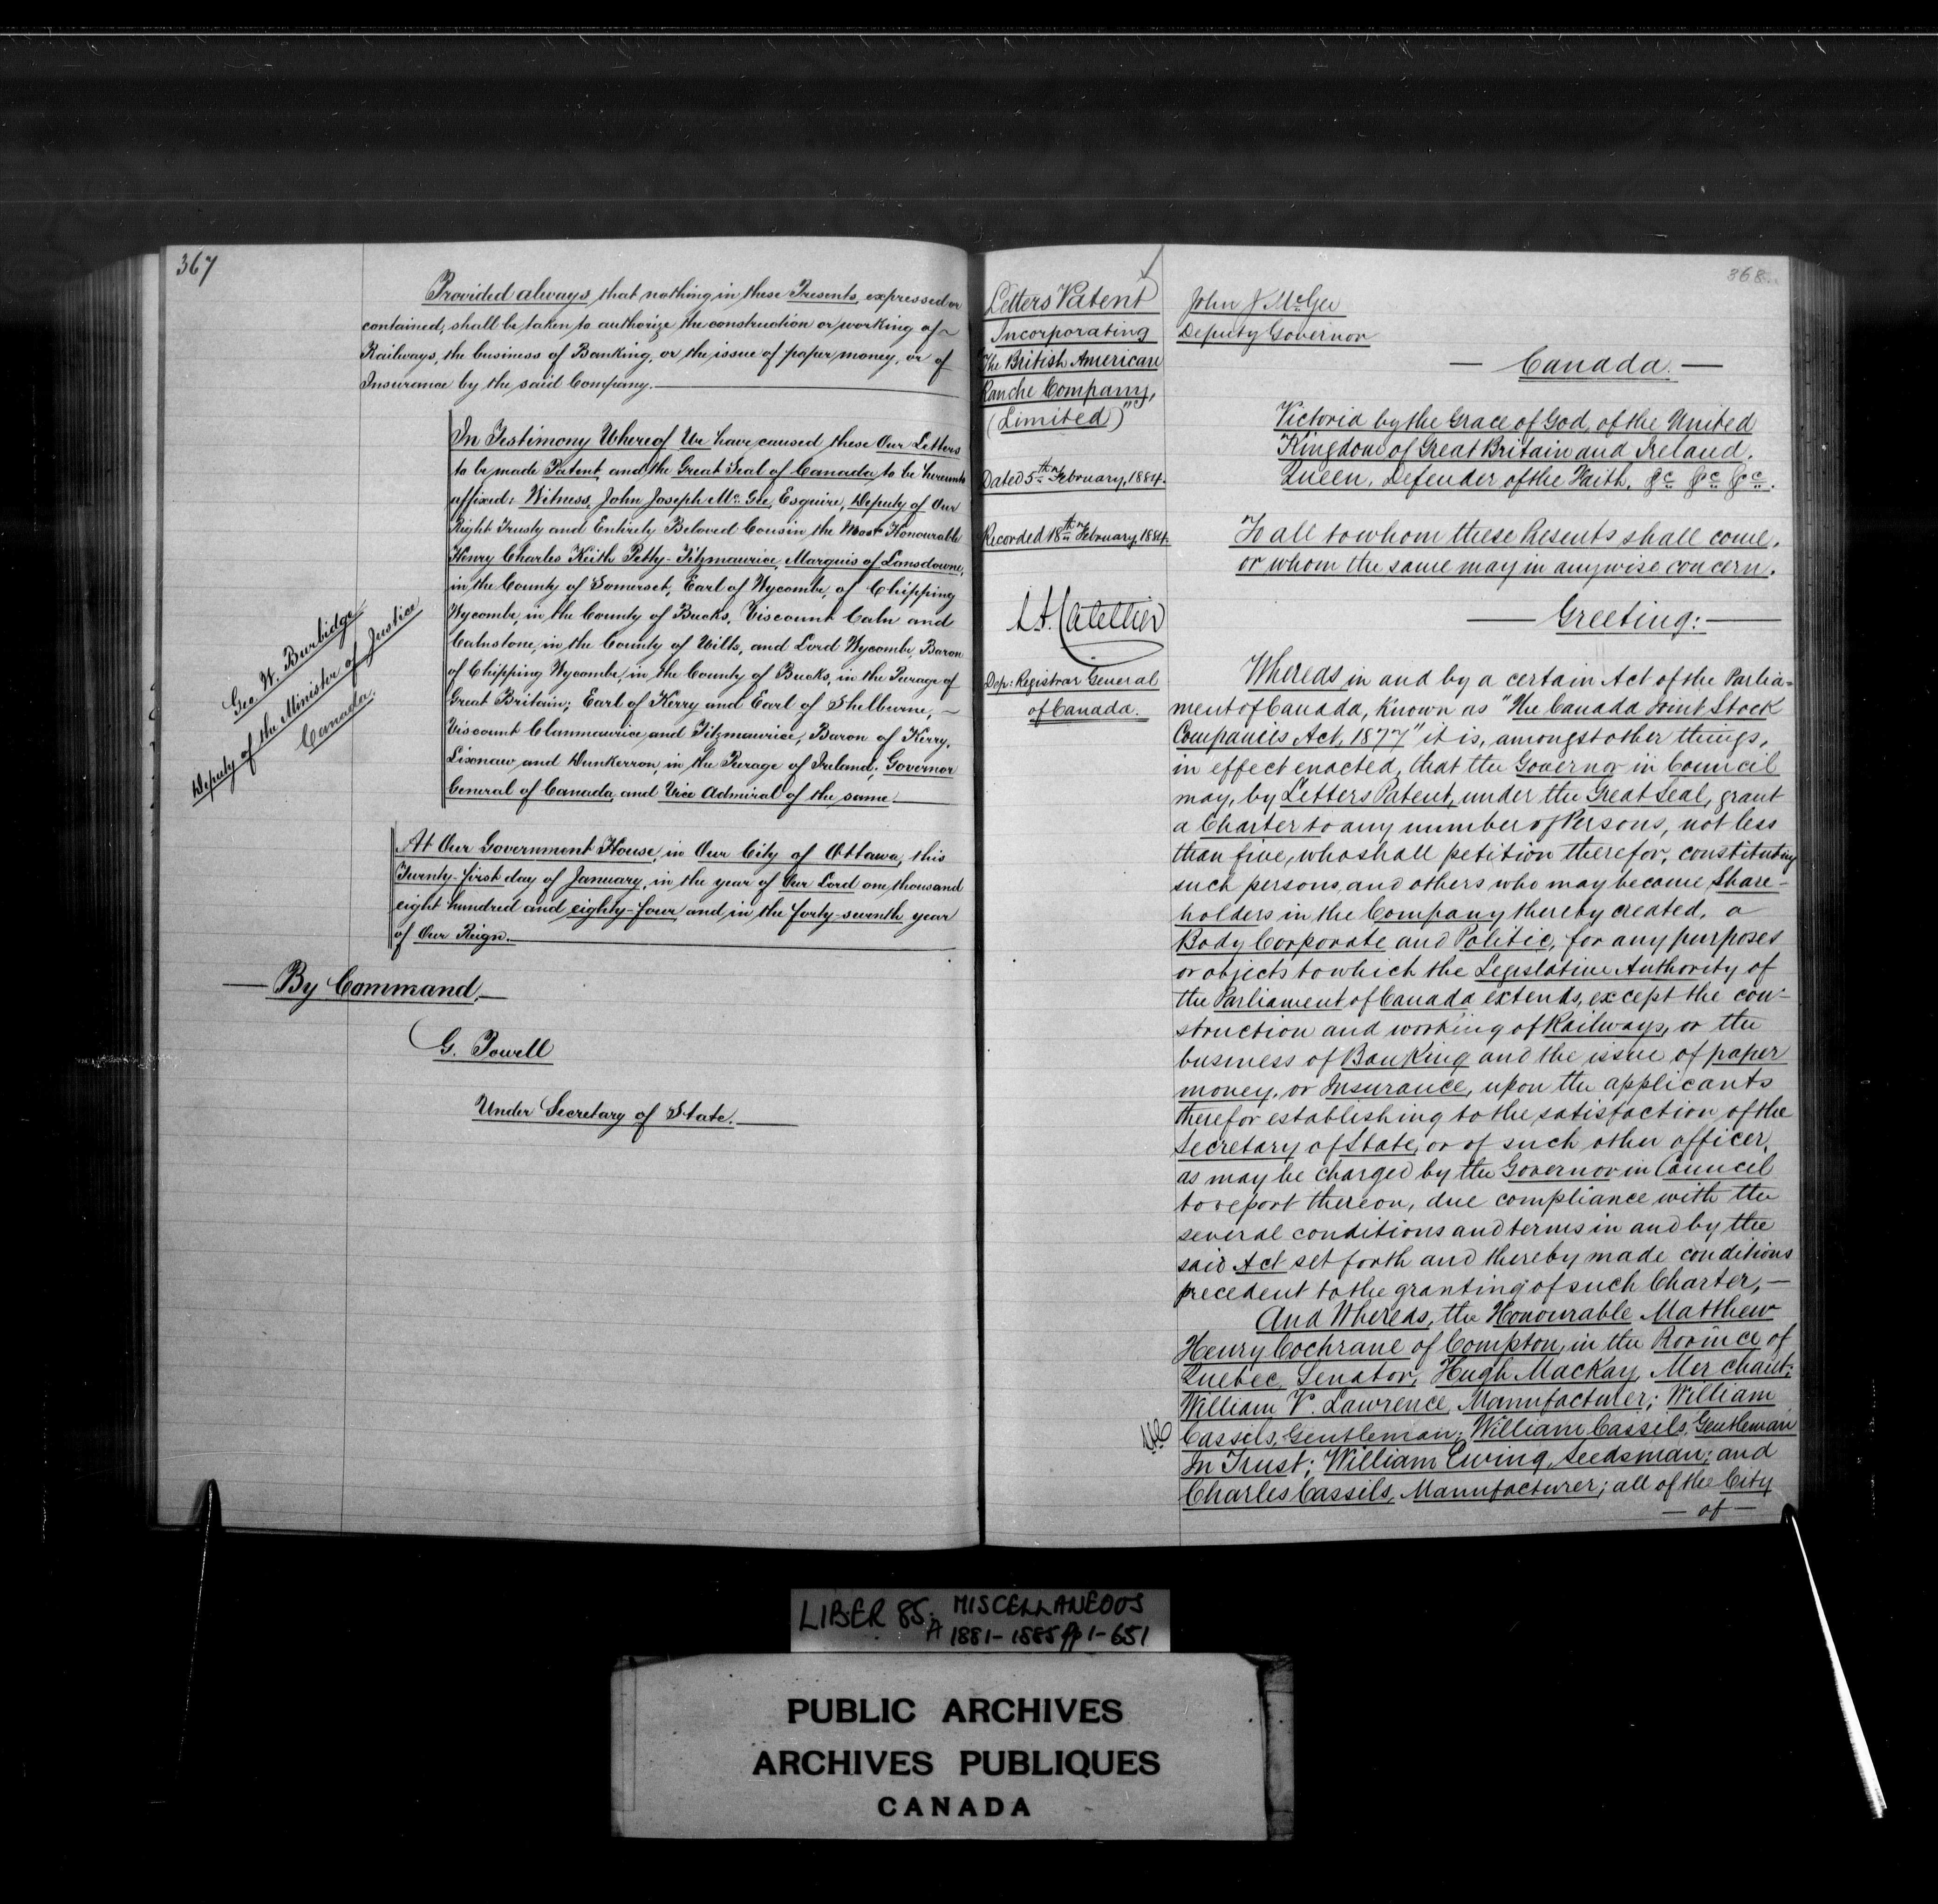 367
Provided always that nothing in these Presents expressed or
contained, shall be taken to authorize the construction or working of
Railways, the business of Banking, or the issue of paper money, or of
Insurance by the said Company.
In Testimony Whereof We have caused these Our Letters
to be made Patent and the Great Seal of Canada to be hereunto
affixed: Witness, John Joseph Mc. Gee, Esquire, Deputy of Our
Right Trusty and Entirely Beloved Cousin the Most Honourable
Henry Charles Keith Petty-Fitzmaurice, Marquis of Lansdowne,
in the County of Somerset, Earl of Wycombe, of Chipping
Wycombe, in the County of Bucks, Viscount Caln and
Calnstone, in the County of Wilts, and Lord Wycombe, Baron
of Chipping Wycombe, in the County of Bucks, in the Peerage of
Great Britain; Earl of Kerry and Earl of Shelburne,
Viscount Clanmaurice and Fitzmaurice, Baron of Kerry,
Lixnaw and Dunkerron, in the Peerage of Ireland; Governor
General of Canada, and Vice Admiral of the same.
Geo. W. Burbidge
Deputy of the Minister of Justice
Canada.
At Our Government House, in Our City of Ottawa, this
Twenty-first day of January, in the year of Our Lord one thousand
eight hundred and eighty-four and in the forty-seventh year
of Our Reign.
By Command,
G. Powell
Under Secretary of State.
368
Letters Patent
Incorporating
"The British American
Ranche Company,
(Limited)"
Dated 5th February, 1884.
Recorded 18th February, 1884.
L A. Catellier
Dep: Registrar General
of Canada.
John J McGee
Deputy Governor
Canada.
Victoria by the Grace of God, of the United
Kingdom of Great Britain and Ireland,
Queen, Defender of the Faith, &c &c &c.
To all to whom these Presents shall come,
or whom the same may in anywise concern.
Greeting:
Whereas in and by a certain Act of the Parlia-
ment of Canada, known as "The Canada Joint Stock
Companies Act, 1877" it is, amongst other things,
in effect enacted, that the Governor in Council
may, by Letters Patent, under the Great Seal, grant
a Charter to any number of Persons, not less
than five, who shall petition therefor, constituting
such persons, and others who may become Share-
holders in the Company thereby created, a
Body Corporate and Politic, for any purposes
or objects to which the Legislative Authority of
the Parliament of Canada extends, except the con-
struction and working of Railways, or the
business of Banking and the issue of paper
money, or Insurance, upon the applicants
therefor establishing to the satisfaction of the
Secretary of State, or of such other officer,
as may be charged by the Governor in Council
to report thereon, due compliance with the
several conditions and terms in and by the
said Act set forth and thereby made conditions
precedent to the granting of such Charter,
And Whereas, the Honourable Matthew
Henry Cochrane of Compton, in the Province of
Quebec, Senator, Hugh MacKay, Merchant;
William V. Lawrence, Manufacturer; William
Cassels, Gentleman; William Cassels, Gentleman
In Trust; William Ewing, Seedsman; and
Charles Cassils, Manufacturer; all of the City
of
LIBER 85. A MISCELLANEOUS
1881-1885 pp 1-651
PUBLIC ARCHIVES
ARCHIVES PUBLIQUES
CANADA